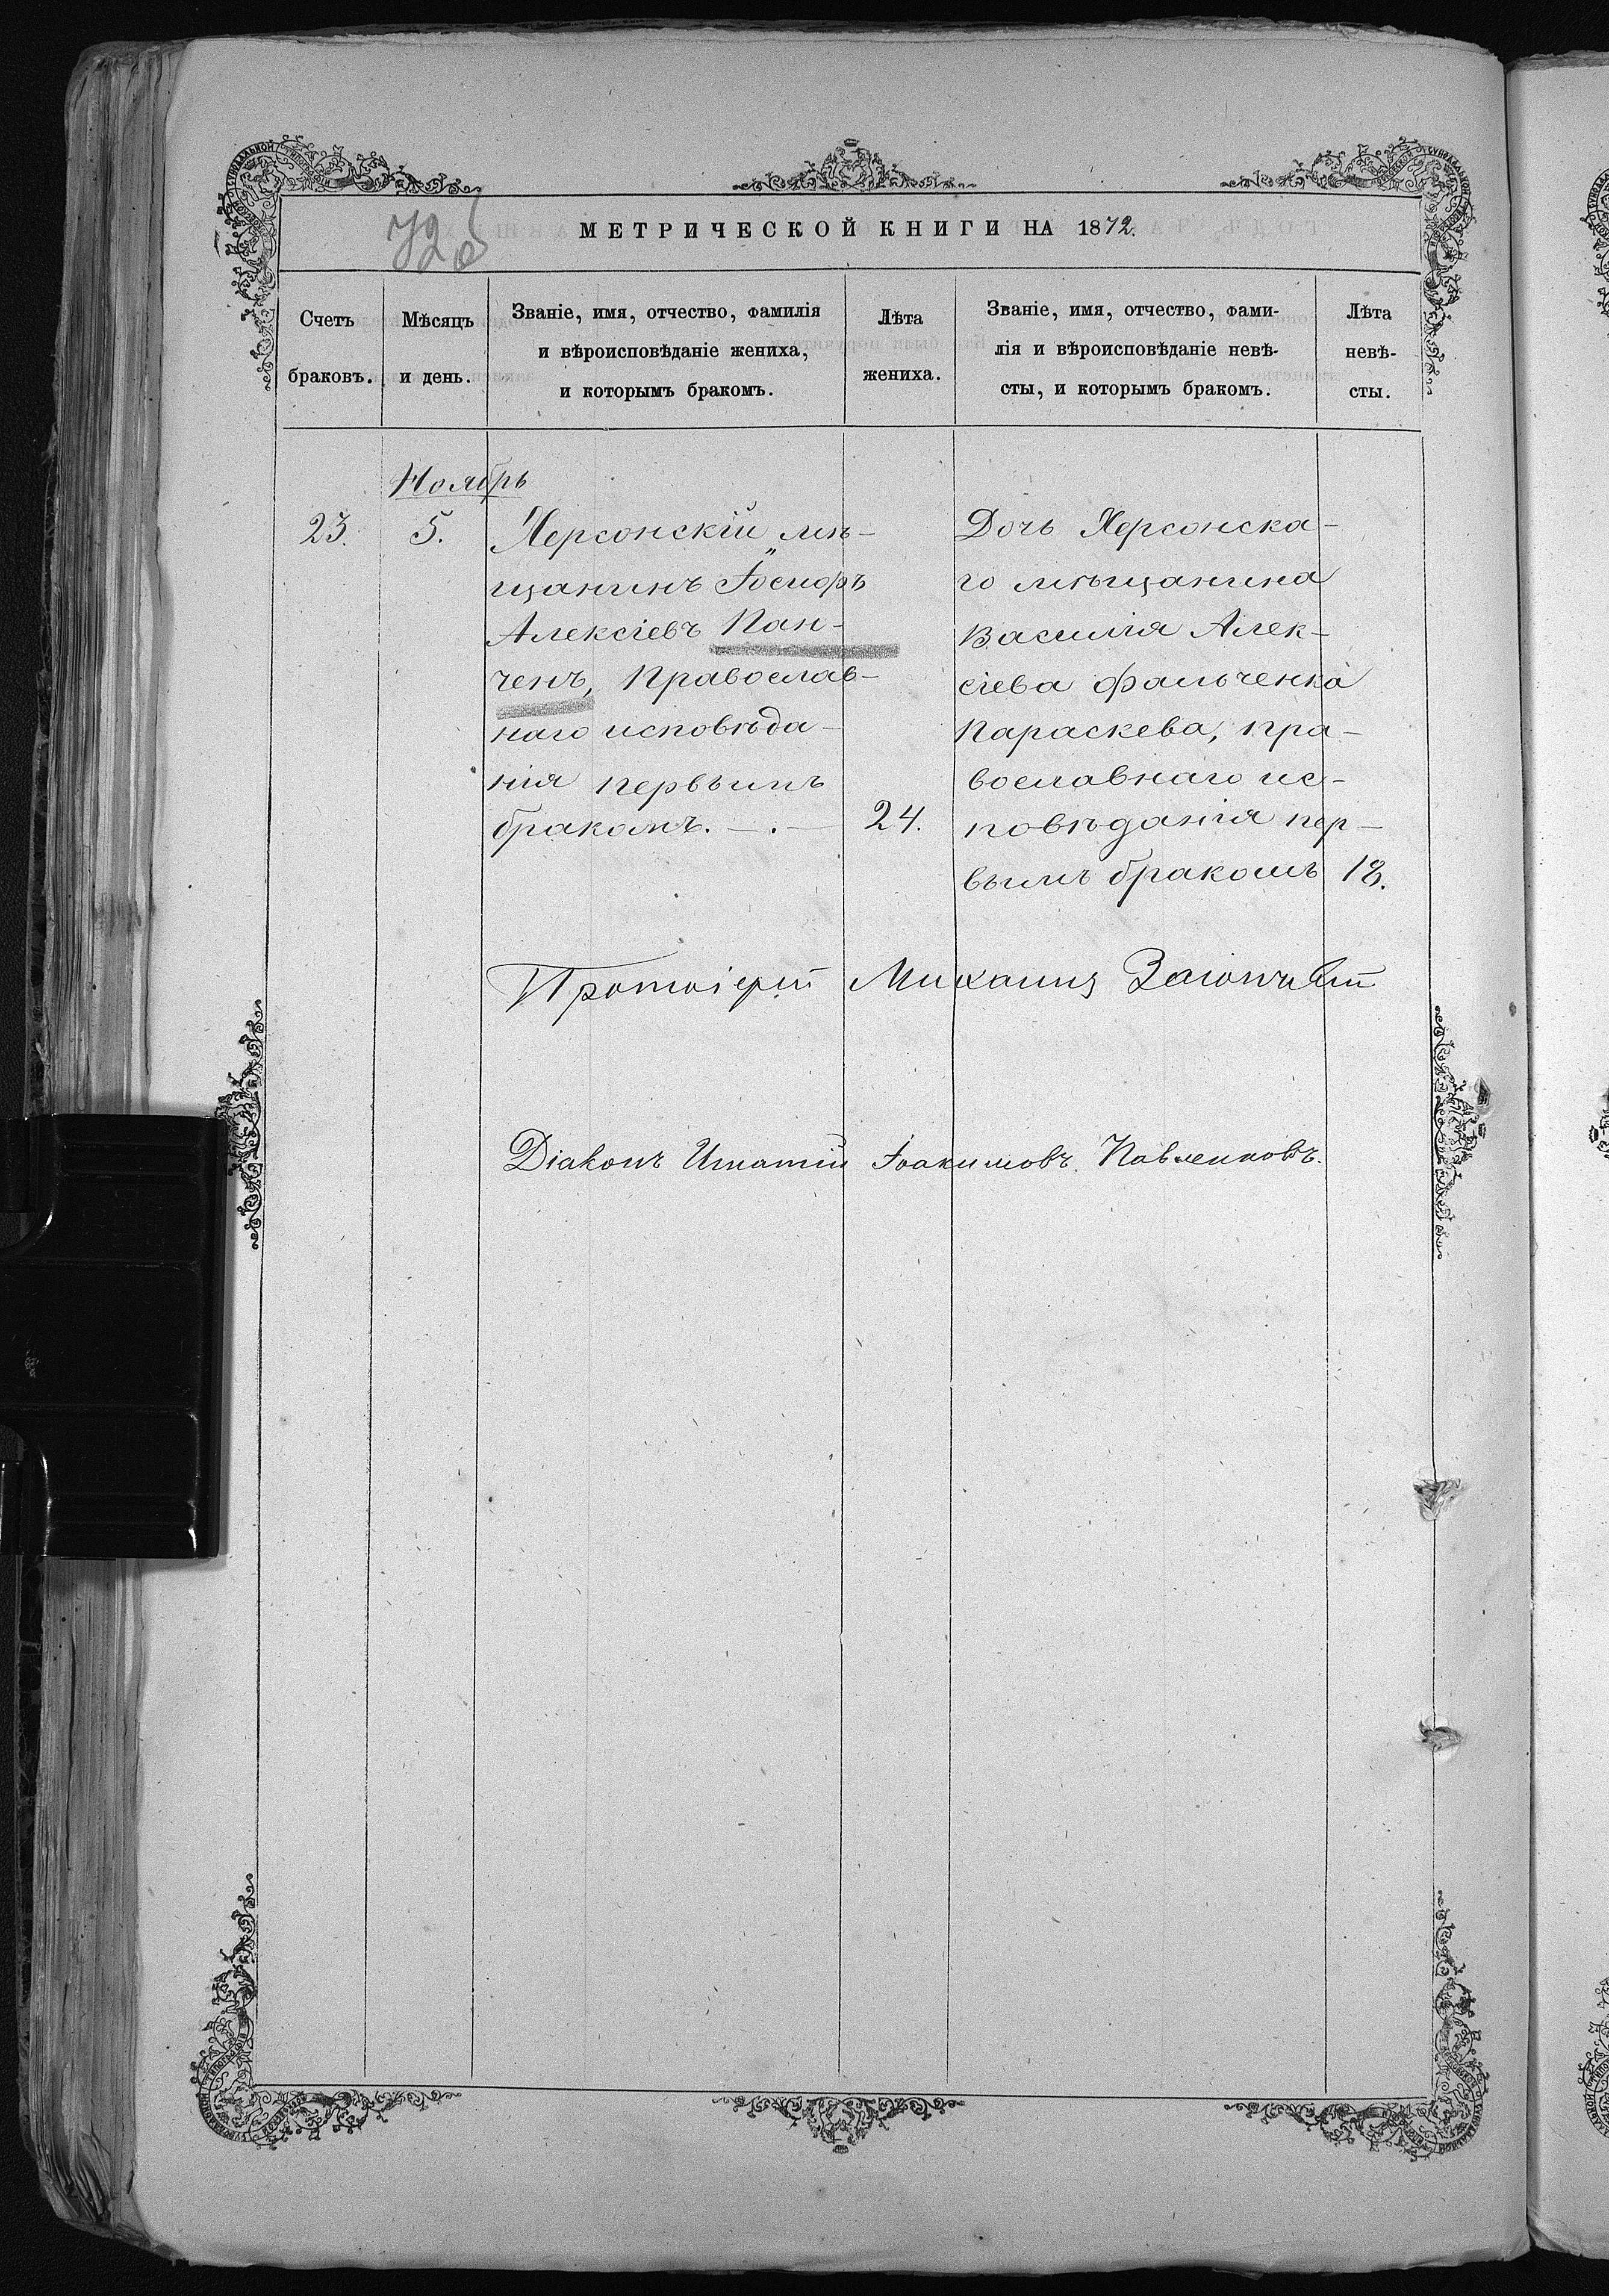 72об
МЕТРИЧЕСКОЙ КНИГИ НА 1872.
Счетъ браковъ.
Мѣсяцъ и день.
Званіе, имя, отчество, фамилія
и вѣроисповѣданіе жениха,
и которымъ бракомъ.
Лѣта жениха.
Званіе, имя, отчество, фами-
лія и вѣроисповѣданіе невѣ-
сты, и которымъ бракомъ.
Лѣта
невѣ-
сты.
Ноябрь
23.
5.
Херсонскій мѣ-
щанинъ Іосифъ
Алексіевъ Пан-
ченъ, Православ-
наго исповѣда-
нія первымъ
бракомъ. —.—
24.
Дочь Херсонска-
го мѣщанина
Василія Алек-
сіева Фальченка
Параскева, пра-
вославнаго ис-
повѣданія пер-
вымъ бракомъ
18.
Протоіерей Михаилъ
Діаконъ Игнатій Іоакимовъ Павленковъ.